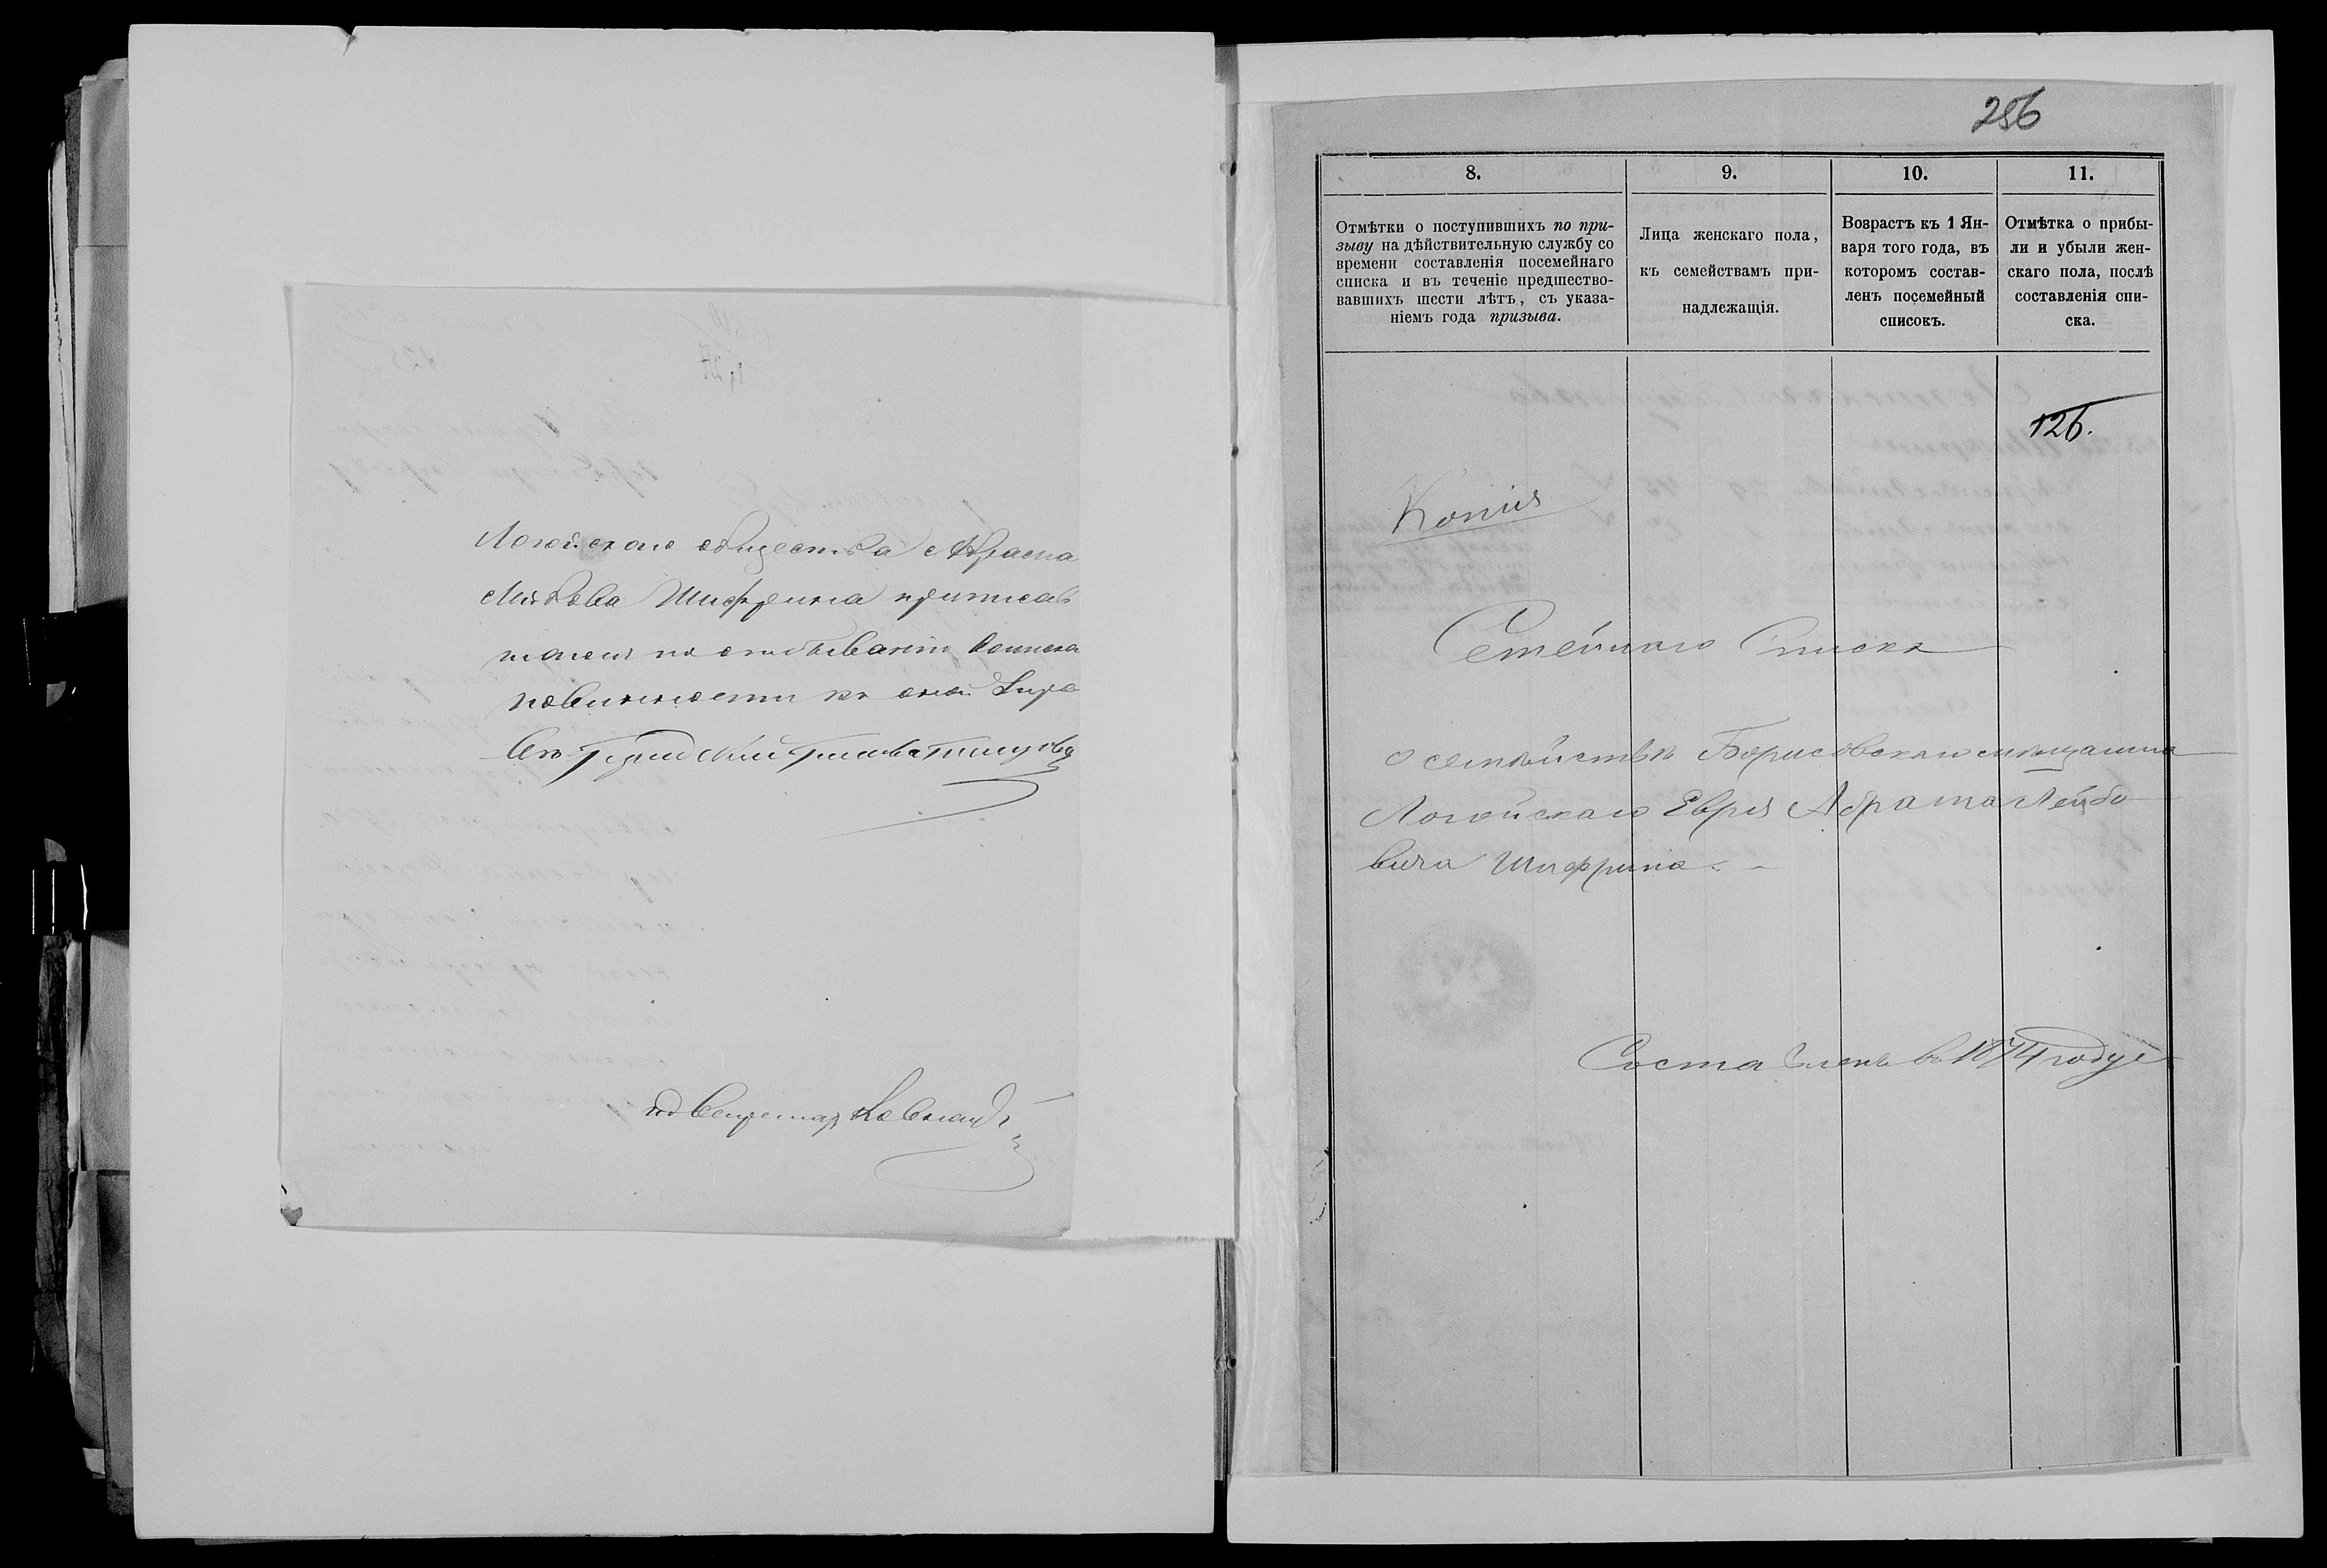 Логойскаго общества Абрама
Лейбова Шифрина приписав
по отбыванію воинска
повинности къ оной
Секретар
256
8.
Отмѣтки о поступившихъ по при-
зыву на дѣйствительную службу со
времени составленія посемейнаго
списка и въ теченіе предшество-
вавшихъ шести лѣтъ, съ указа-
ніемъ года призыва.
9.
Лица женскаго пола,
къ семействамъ при-
надлежащія.
10.
Возрастъ къ 1 Ян-
варя того года, въ
которомъ состав-
ленъ посемейный
списокъ.
11.
Отмѣтка о прибы-
ли и убыли жен-
скаго пола, послѣ
составленія спи-
ска.
126.
Копія
Семейнаго Списка
о семействѣ Борисовскаго мѣщанина
Логойскаго Еврея Абрама Лейбо
вича Шифрина.
Составленъ въ 1874 году